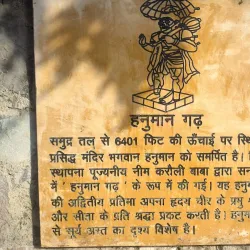 हनुमान गढ़
समुद्र तल से 6401 फिट की ऊँचाई पर स्थि
प्रसिद्ध मंदिर भगवान हनुमान को समर्पित है।
स्थापना पूज्यनीय नीम करौली बाबा द्वारा सन
में ' हनुमान गढ़ ' के रूप में की गई। यह हनु
की अद्वितीय प्रतिमा अपना हृदय चीर के प्रभु
और सीता के प्रति श्रद्धा प्रकट करती है। हनुमा
से सूर्य अस्त का दृश्य विशेष है।